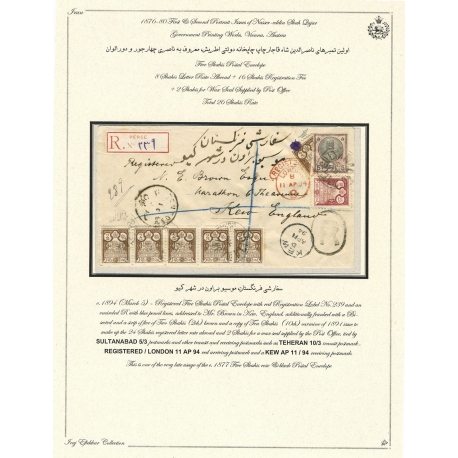 Iran
1876-80 First & Second Portrait Issues of Nasser-eddin Shah Qajar
Government Printing Works, Vienna, Austria
اولین تمبرهای ناصرالدین شاه قاجار چاپ چاپخانه دولتی اطریش، معروف به ناصری چهارجور و دورالوان
Five Shahis Postal Envelope
8 Shahis Letter Rate Abroad + 16 Shahis Registration Fee
+ 2 Shahis for Wax Seal Supplied by Post Office
Total 26 Shahis Rate
PERSE
R. No ٢٣٩
سفارشی فرنگستان
موسیو براون در شهر کیو
Registered
239
N. E. Brown Esqr
Marathon
Kew England
REGISTERED
LONDON
11 AP 94
KEW
AP 11
94
R
سفارشی فرنگستان، موسیو براون در شهر کیو
c. 1894 (March 5) - Registered Five Shahis Postal Envelope with red Registration Label No.239 and an
awarded R with blue pencil lines, addressed to Mr. Brown in Kew, England, additionally franked with a Bi-
sected and a strip of five of Two Shahis (2ch) brown and a copy of Ten Shahis (10ch) version of 1891 issue to
make up the 24 Shahis registered letter rate abroad and 2 Shahis for a wax seal supplied by the Post Office, tied by
SULTANABAD 5/3 postmarks and other transit and receiving postmarks such as TEHERAN 10/3 transit postmark,
REGISTERED / LONDON 11 AP 94 red receiving postmark and a KEW AP 11 / 94 receiving postmark.
This is one of the very late usage of the c. 1877 Five Shahis rose & black Postal Envelope
Iraj Eftekhar Collection